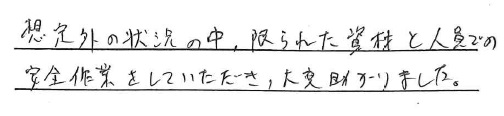 想定外の状況の中，限られた資材と人員での
安全作業をしていただき，大変助かりました。